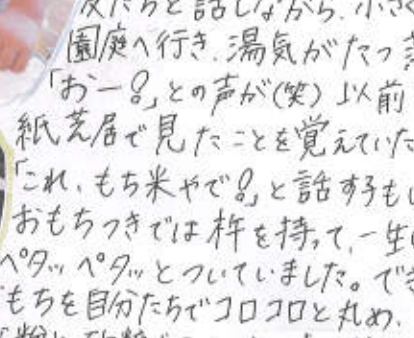 友たちと話しながら、小さ
園庭へ行き、湯気がたっ
「おー!」との声が(笑) 以前
紙芝居で見たことを覚えていた
「これ、もち米やで!」と話す子も
おもちつきでは杵を持って、一生
ペタッペタッとついていました。でき
もちを自分たちでコロコロと丸め、